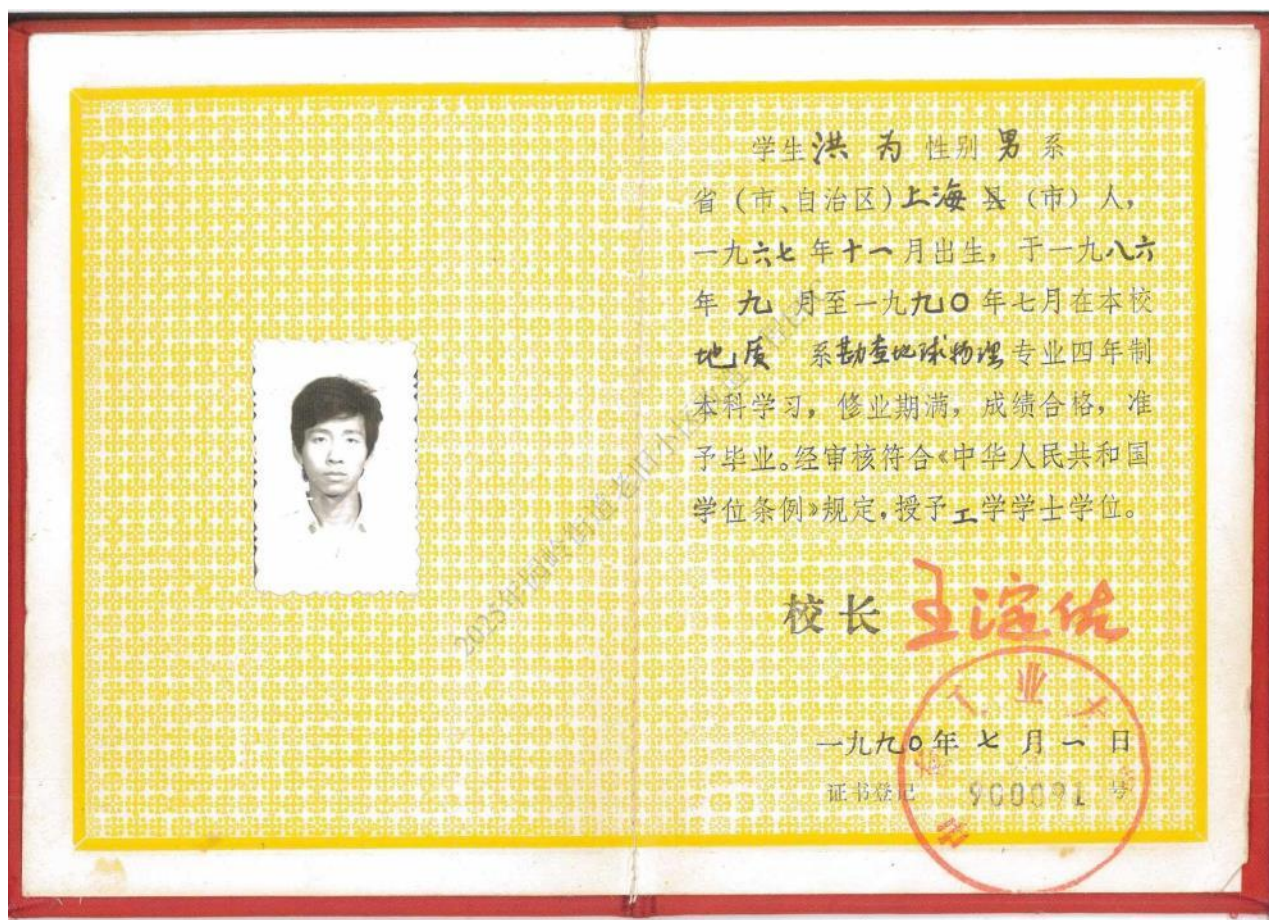 学生洪为性别男系
省(市、自治区)上海县(市)人,
一九六七年十一月出生,于一九八六
年九月至一九九〇年七月在本校
地质系勘查地球物理专业四年制
本科学习,修业期满,成绩合格,准
予毕业。经审核符合《中华人民共和国
学位条例》规定,授予工学学士学位。
校长 王淀佐
一九九〇年七月一日
证书登记 900091 号